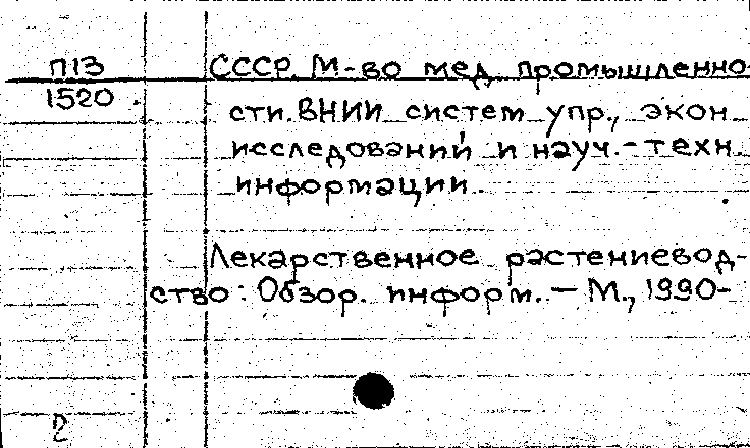 П13
1520
СССР. М-во мед. промышленно-
сти. ВНИИ систем упр., экон.
исследований и науч.-техн.
информации.
Лекарственное растениевод-
ство: Обзор. информ. — М., 1990-
2